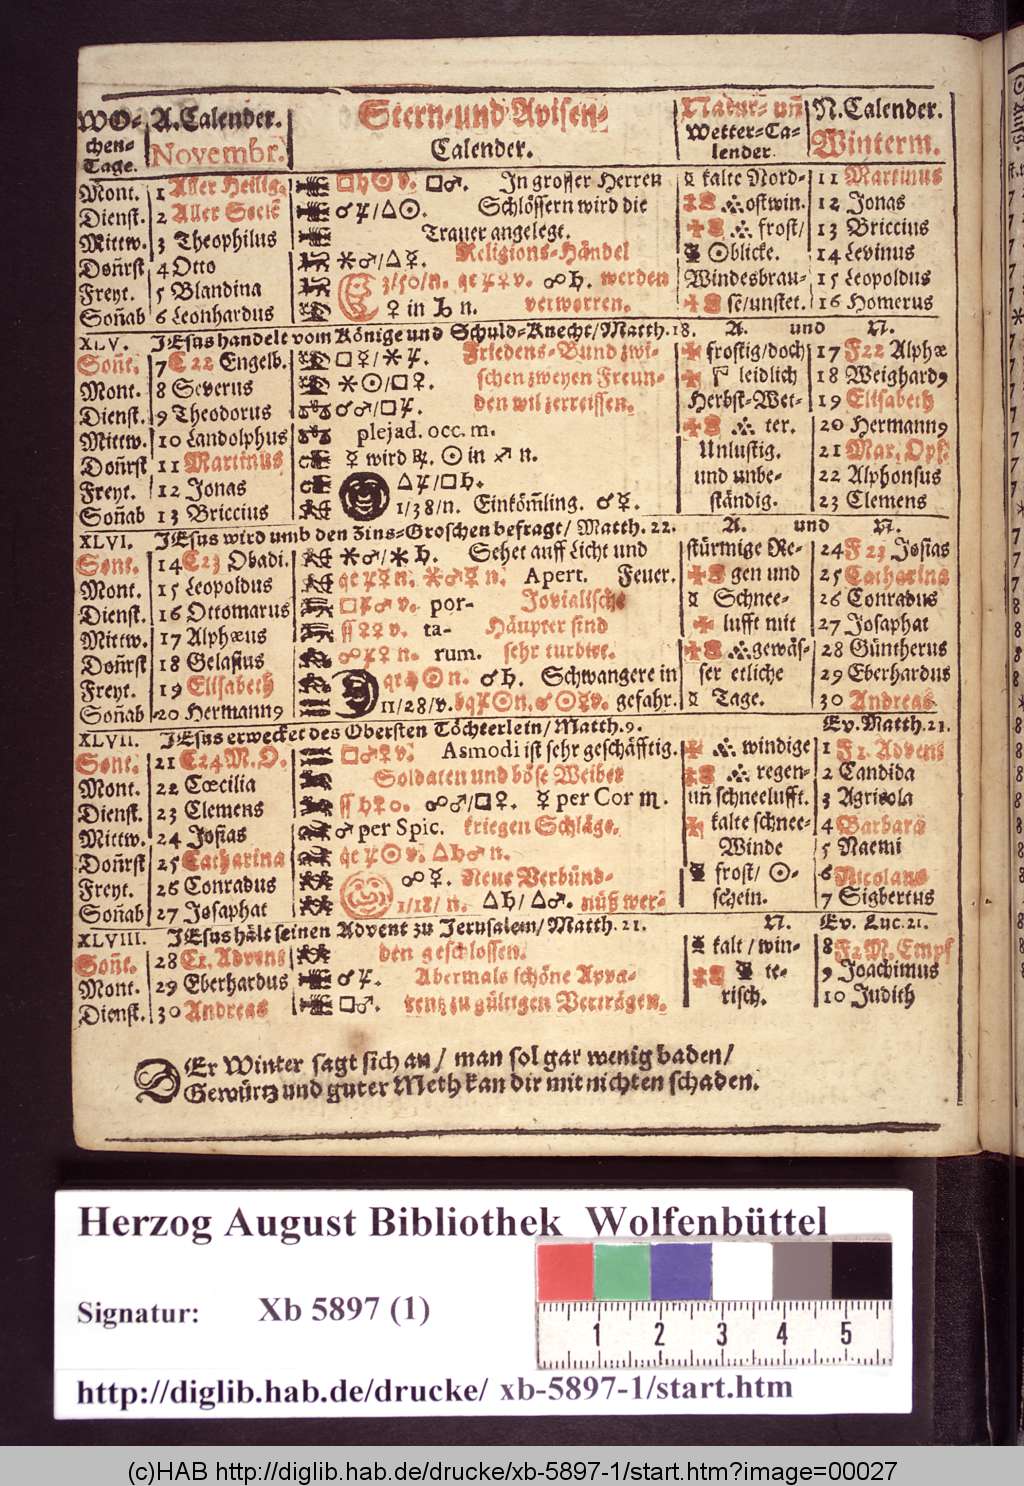 WO- A. Calender. Stern- und Avisen- Natur- uñ N. Calender.
chen- Novembr. Calender. Wetter-Ca- Winterm.
Tage. lender.
Mont. 1 Aller Heilig. □♄☉ v. □♂. In grosser Herren ☿ kalte Nord- 11 Martinus
Dienst. 2 Aller Seelẽ ♂♃/△☉. Schlössern wird die ostwin. 12 Jonas
Mittw. 3 Theophilus Trauer angelegt. frost/ 13 Briccius
Doñrst 4 Otto ⚹♂/△☿. Religions-Händel ☉blicke. 14 Levinus
Freyt. 5 Blandina 3/50/n. ☍♄. werden Windesbrau- 15 Leopoldus
Soñab 6 Leonhardus ♀ in ♑ n. verworren. se/unstet. 16 Homerus
XLV. JEsus handelt vom Könige und Schuld-Knecht/Matth.18. A. und N.
Soñt. 7 C 22 Engelb. □☿/⚹♃. Friedens-Bund zwi- frostig/doch 17 F22 Alphæ
Mont. 8 Severus ⚹☉/□♀. schen zweyen Freun- leidlich 18 Weighard9
Dienst. 9 Theodorus ♂♂/□♃. den wil zerreissen. Herbst-Wet- 19 Elisabeth
Mittw. 10 Landolphus plejad. occ. m. ter. 20 Hermann9
Doñrst 11 Martinus ☿ wird ℞. ☉ in ♐ n. Unlustig. 21 Mar. Opf.
Freyt. 12 Jonas △♃/□♄. und unbe- 22 Alphonsus
Soñab 13 Briccius 1/38/n. Einköm̃ling. ☌☿. ständig. 23 Clemens
XLVI. JEsus wird umb den Zins-Groschen befragt/ Matth. 22. A. und N.
Soñt. 14 C23 Obadi. ⚹♂/⚹♄. Sehet auff Licht und stürmige Re- 24 F 23 Josias
Mont. 15 Leopoldus Apert. Feuer. gen und 25 Catharina
Dienst. 16 Ottomarus por- Jovialische ☿ Schnee- 26 Conradus
Mittw. 17 Alphæus ta- Häupter sind lufft mit 27 Josaphat
Doñrst 18 Gelasius rum. sehr turbirt. gewäs- 28 Güntherus
Freyt. 19 Elisabeth ☌♄. Schwangere in ser etliche 29 Eberhardus
Soñab 20 Hermann9 11/28/v. gefahr. ☿ Tage. 30 Andreas
XLVII. JEsus erwecket des Obersten Töchterlein/ Matth. 9. Ev. Matth. 21.
Soñt. 21 C24 M. O. □♂♀ v. Asmodi ist sehr geschäfftig. windige 1 F1. Advent
Mont. 22 Cœcilia Soldaten und böse Weiber regen- 2 Candida
Dienst. 23 Clemens ☍♂/□♀. ☿ per Cor ♏. uñ schneelufft. 3 Agricola
Mittw. 24 Josias ♂ per Spic. kriegen Schläge. kalte schnee- 4 Barbara
Doñrst 25 Catharina △♄♂ n. Winde 5 Naemi
Freyt. 26 Conradus ☍☿. Neue Verbünd- frost/ ☉- 6 Nicolaus
Soñab 27 Josaphat 1/18/ n. △♄/△♂. nüß wer- schein. 7 Sigbertus
XLVIII. JEsus hält seinen Advent zu Jerusalem/ Matth. 21. N. Ev. Luc. 21.
Soñt. 28 C1. Advent den geschlossen. kalt / win- 8 F2 M. Empf
Mont. 29 Eberhardus ☌♃. Abermals schöne Appa- te- 9 Joachimus
Dienst. 30 Andreas □♂. rentz zu gültigen Verträgen. risch. 10 Judith
DEr Winter sagt sich an/ man sol gar wenig baden/
Gewürtz und guter Meth kan dir mit nichten schaden.
Herzog August Bibliothek Wolfenbüttel
Signatur: Xb 5897 (1)
1 2 3 4 5
http://diglib.hab.de/drucke/ xb-5897-1/start.htm
(c)HAB http://diglib.hab.de/drucke/xb-5897-1/start.htm?image=00027